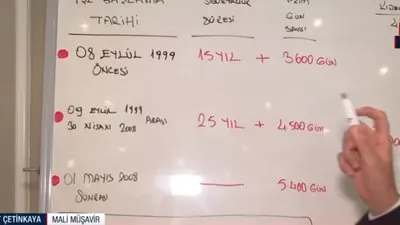 TARİHİ
SÜRESİ
GÜN
SAYISI
08 EYLÜL 1999
ÖNCESİ
15 YIL + 3600 GÜN
09 EYLÜL 1999
30 NİSAN 2008 ARASI
25 YIL + 4500 GÜN
01 MAYIS 2008
SONRASI
5.400 GÜN
ÇETİNKAYA
MALİ MÜŞAVİR